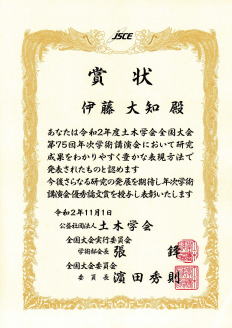 JSCE
賞状
伊藤大知 殿
あなたは令和2年度土木学会全国大会
第75回年次学術講演会において研究
成果をわかりやすく豊かな表現方法で
発表されたものと認めます
今後さらなる研究の発展を期待し年次学術
講演会優秀論文賞を授与し表彰いたします
令和2年11月1日
公益社団法人 土木学会
全国大会実行委員会
学術部会長 張 鋒
全国大会委員会
委員長 濱田秀則